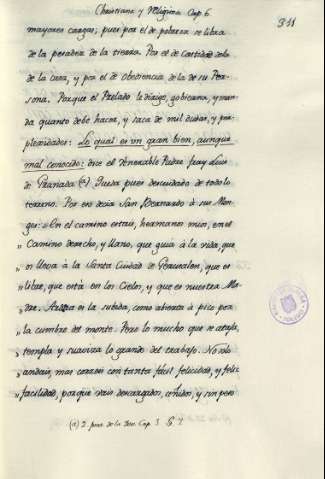 Christiana y Religiosa Cap. 6
311
mayores cargas; pues por el de pobreza se libra
de la pesadez de la tierra. Por el de Castidad de lo
de la carne, y por el de obediencia de la de su Per-
sona. Porque el Prelado le dirige, gobierna, y man-
da quanto debe hacer, y saca de mil dudas, y per-
plexidades: Lo qual es un gran bien, aunque
mal conocido: dice el Venerable Padre fray Luis
de Granada (a) Queda pues descuidado de todo lo
terreno. Por eso decia San Bernardo à sus Mon-
ges: En el camino estais, hermanos mios, en el
„ Camino derecho, y llano, que guia à la vida, que
„ os lleva à la Santa Ciudad de Jerusalen, que es
„ libre, que està en los Cielos, y que es nuestra Ma-
„ dre. Aspera es la subida, como abierta à pico por
„ la cumbre del monte. Pero lo mucho que se ataja,
„ templa y suaviza lo grande del trabajo. No solo
„ andais, mas correis con tanta facil felicidad, y feliz
„ facilidad, porque vais descargados, ceñidos, y sin peso
(a) 2. part. de la Cap. 3 § 2